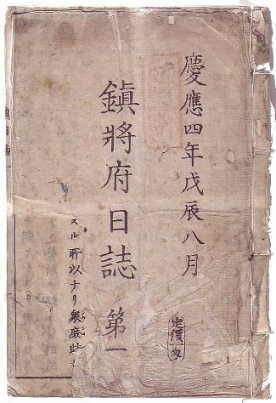 慶應四年戊辰八月
鎮將府日誌 第一
スル所以ナリ衆庶此
定價